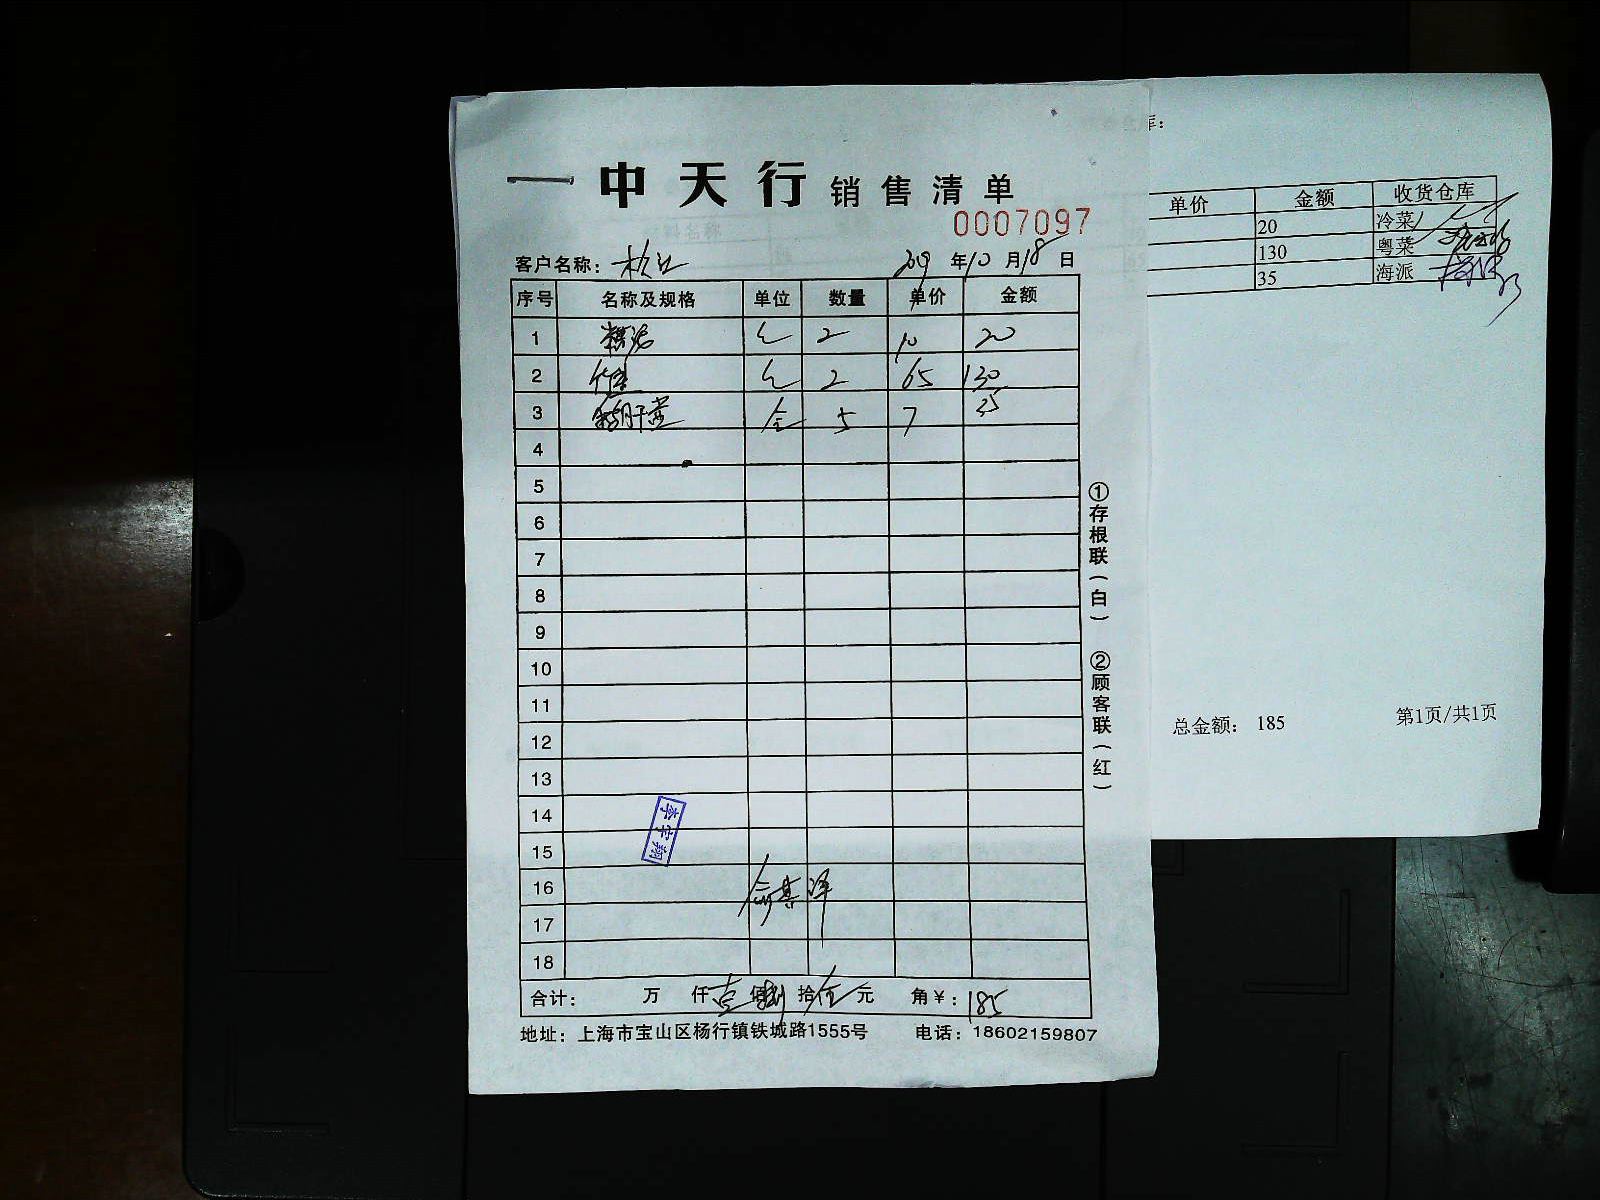 中天行 销售清单
0007097
客户名称： 松江 2019年10月18日
序号 名称及规格 单位 数量 单价 金额
1 2 10 20
2 2 65 130
3 5 7 35
4
5
6
7
8
9
10
11
12
13
14
15
16
17
18
李宇翔
合计： 万 仟 壹佰捌拾伍元 角¥：185
地址：上海市宝山区杨行镇铁城路1555号 电话：18602159807
①存根联（白） ②顾客联（红）
库：
单价 金额 收货仓库
20 冷菜
130 粤菜
35 海派
总金额： 185 第1页/共1页